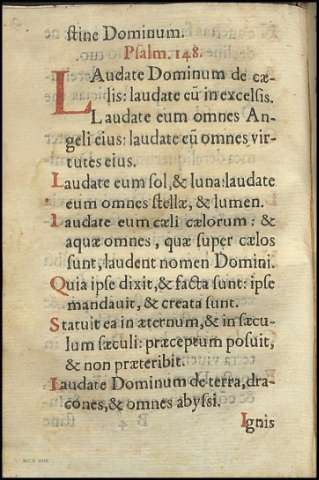 ſtine Dominum.
Pſalm. 148.
LAudate Dominum de cæ-
lis: laudate eū in excelſis.
Laudate eum omnes An-
geli eius: laudate eū omnes vir-
tutes eius.
Laudate eum ſol, & luna: laudate
eum omnes ſtellæ, & lumen.
Laudate eum cæli cælorum: &
aquæ omnes, quæ ſuper cælos
ſunt, laudent nomen Domini.
Quia ipſe dixit, & facta ſunt: ipſe
mandauit, & creata ſunt.
Statuit ea in æternum, & in ſæcu-
lum ſæculi: præceptum poſuit,
& non præteribit.
Laudate Dominum de terra, dra-
cones, & omnes abyſſi.
Ignis